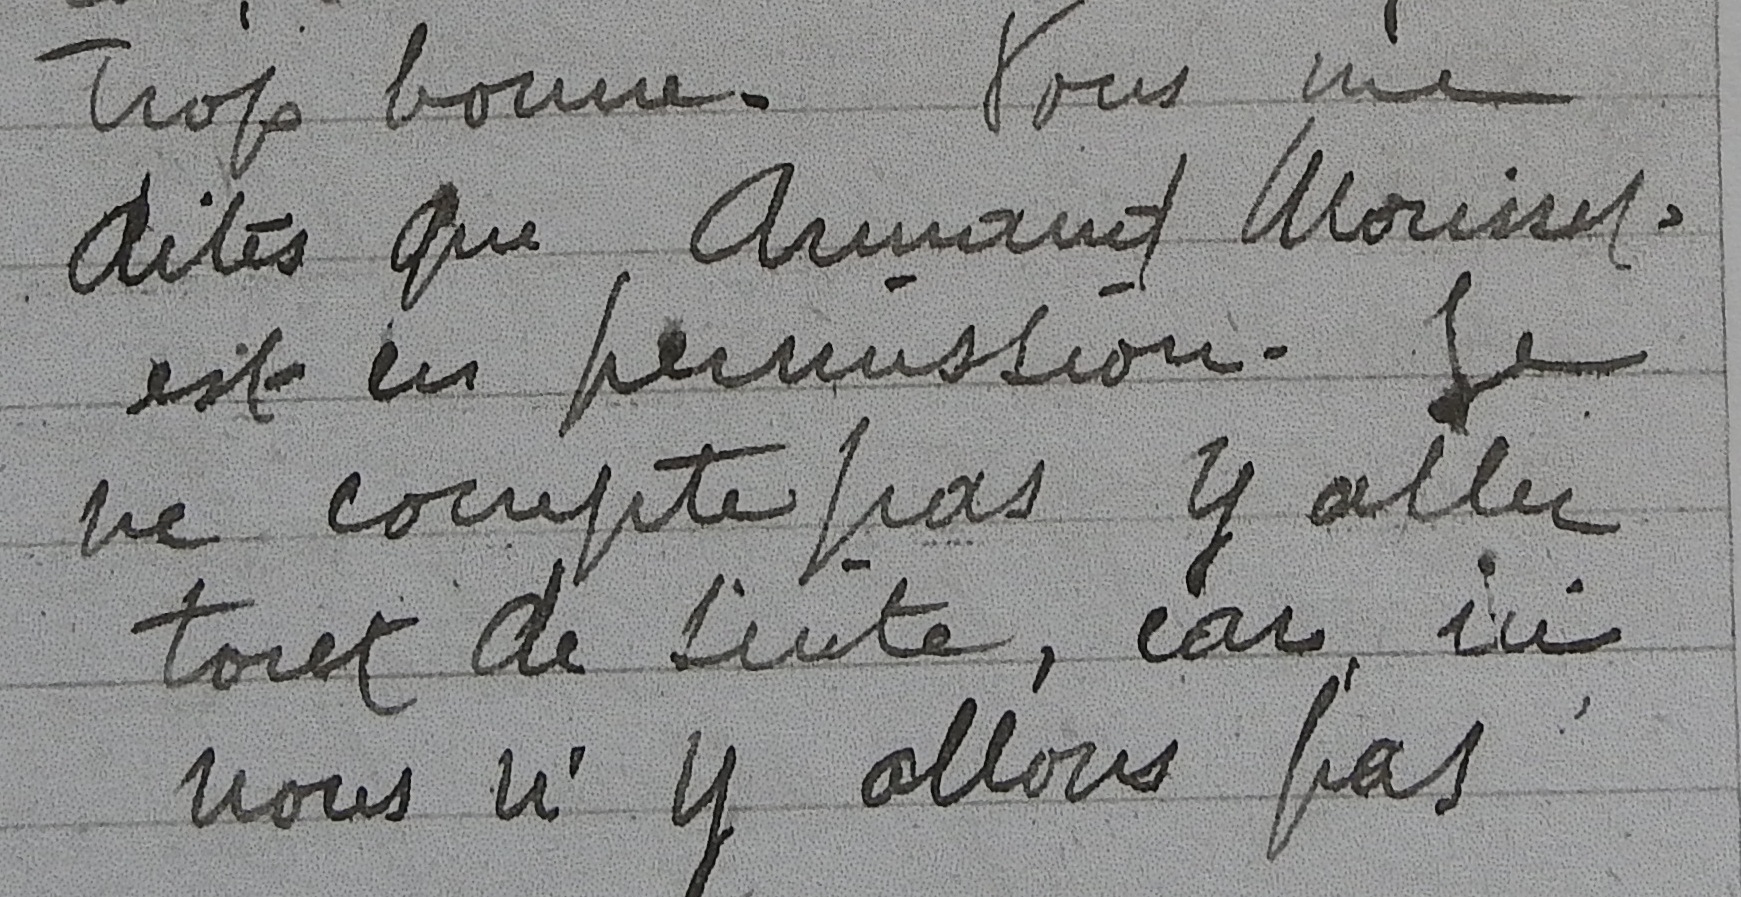 trop bonne. Vous me
dites que Armand Mousset
est en permission. Je
ne compte pas y aller
tout de suite, car, ici
nous n'y allons pas